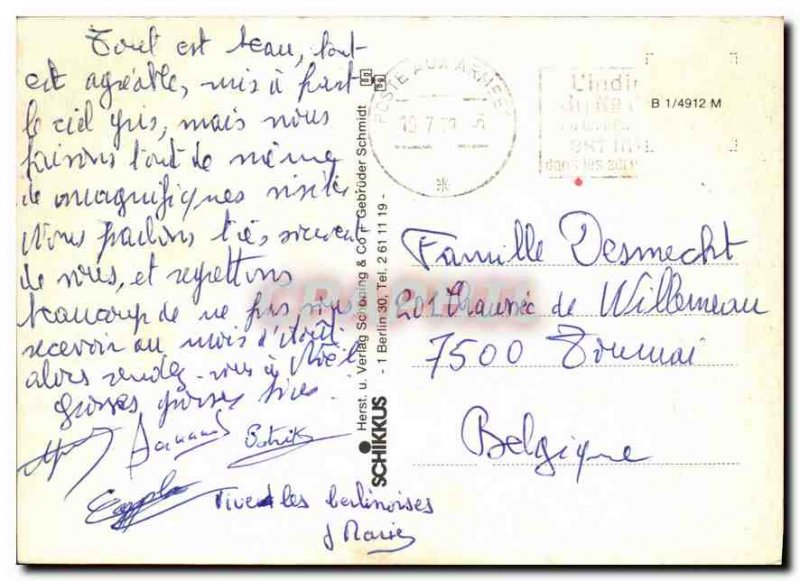 Tout est beau, tout
est agréable, mis à part
le ciel gris, mais nous
faisons tout de même
de magnifiques visites
Nous parlons très souvent
de vous, et regrettons
beaucoup de ne pas vous
recevoir au mois d'Août.
alors rendez-vous à Noël
grosses grosses bises.
Bernard Patrick
Vive les berlinoises
J Marie
SCHIKKUS
Herst. u. Verlag Schöning & Co + Gebrüder Schmidt
- 1 Berlin 30, Tel. 2 61 11 19 -
POSTE AUX ARMEES
19.7.
L'indi
du No
EST
dans les
B 1/4912 M
Famille Desmecht
201 Chaussée de Willemeau
7500 Tournai
Belgique